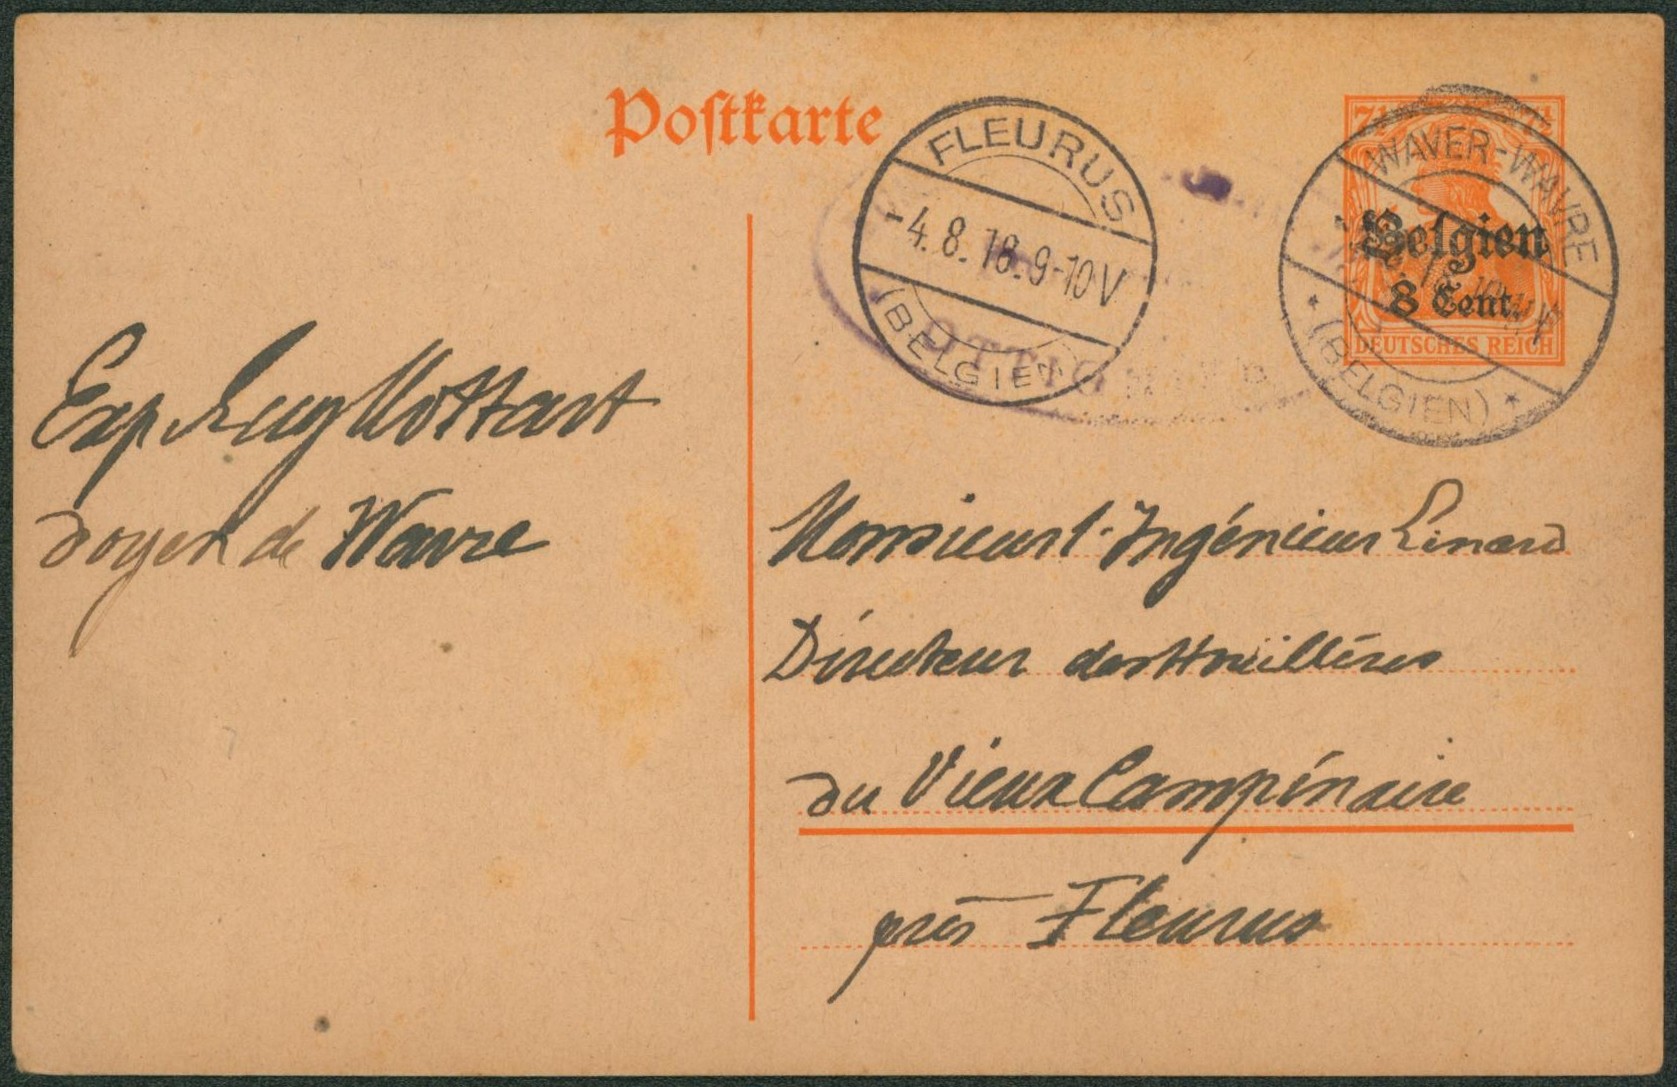 Postkarte
FLEURUS
-4.8.18.9-10V
(BELGIEN)
7½ 7½
WAVER-WAVRE
* (BELGIEN) *
Belgien
8 Cent.
DEUTSCHES REICH
Exp
Doyen de Wavre
Monsieur l'Ingénieur Linard
Directeur des Houillères
du Vieux Campinaire
près Fleurus